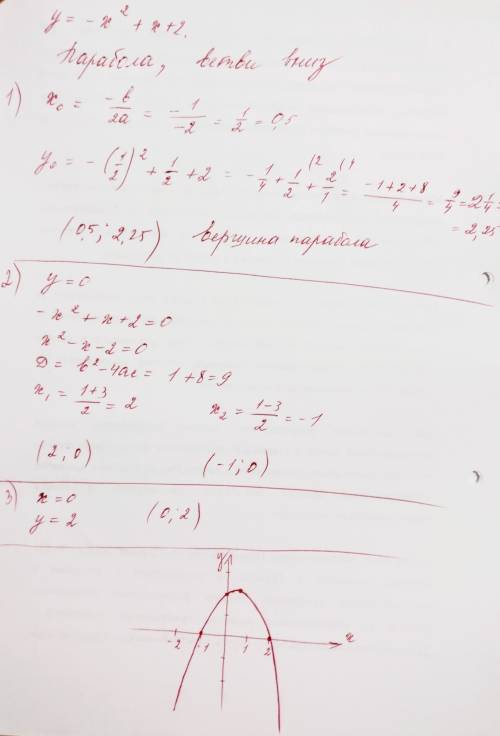 y = -x² + x + 2.
Парабола, ветви вниз
1) x₀ = -b/2a = -1/-2 = 1/2 = 0,5
y₀ = -(1/2)² + 1/2 + 2 = -1/4 + 1/2 (2 + 2/1 (4 = -1+2+8/4 = 9/4 = 2 1/4 =
= 2,25
(0,5; 2,25) Вершина парабола
2) y = 0
-x² + x + 2 = 0
x² - x - 2 = 0
D = b² - 4ac = 1 + 8 = 9
x₁ = 1+3/2 = 2 x₂ = 1-3/2 = -1
(2; 0) (-1; 0)
3) x = 0
y = 2 (0; 2)
y
-2 -1 1 2 x